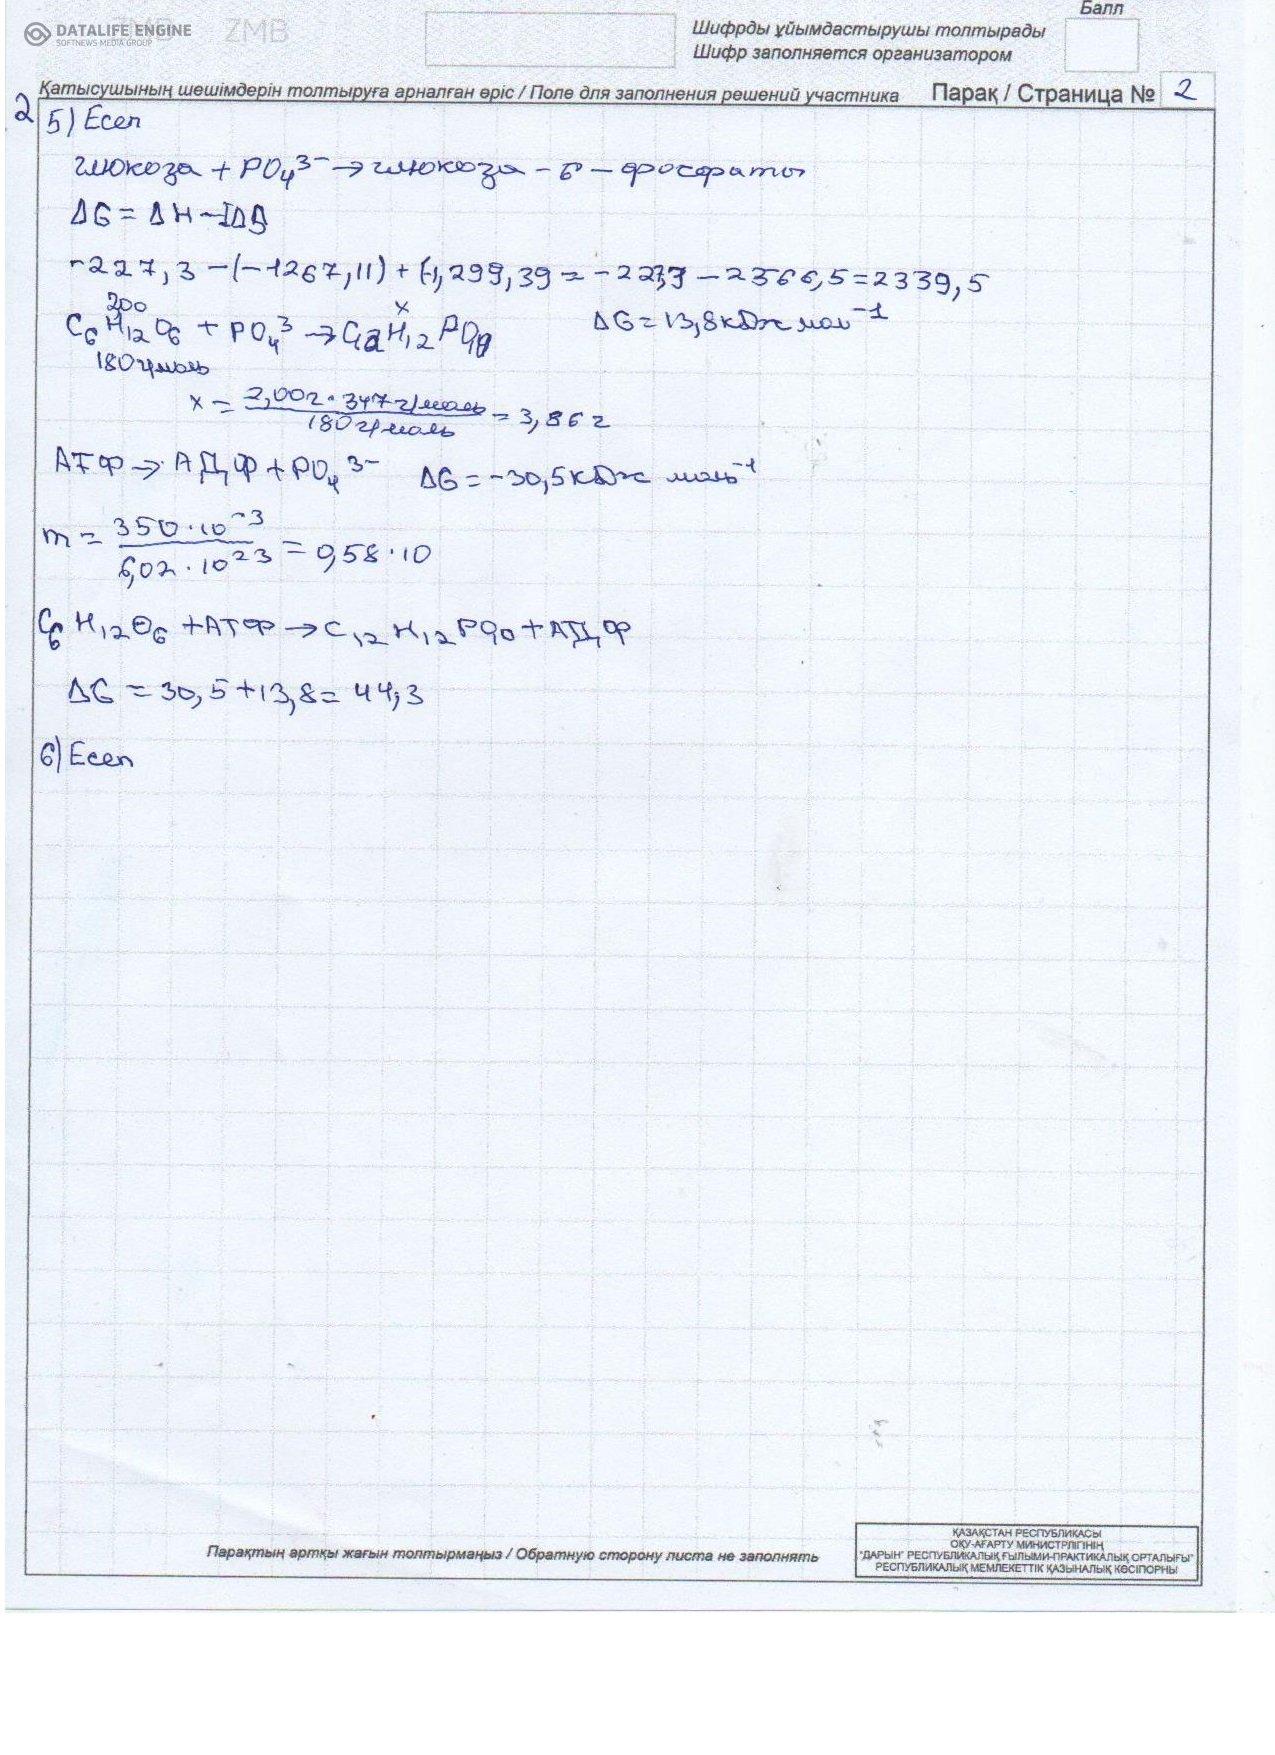 DATALIFE ENGINE
SOFTNEWS MEDIA GROUP
ZMB
Балл
Шифрды ұйымдастырушы толтырады
Шифр заполняется организатором
Қатысушының шешімдерін толтыруға арналған өріс / Поле для заполнения решений участника Парақ / Страница № 2
2
5) Есеп
глюкоза + PO₄³⁻ → глюкоза - 6 - фосфаты
ΔG = ΔH - TΔS
-227,3 - (-1267,11) + (-1,299,39 = - 227,3 - 2366,5 = 2339,5
200 x
C₆H₁₂O₆ + PO₄³ → C₁₂H₁₂PO₁₀ ΔG = 13,8 кДж мол⁻¹
180 г/моль
x = 2,00г · 347 г/моль / 180 г/моль = 3,86 г
АТФ → АДФ + PO₄³⁻ ΔG = -30,5 кДж моль⁻¹
m = 350 · 10⁻³ / 6,02 · 10²³ = 0,58 · 10
C₆H₁₂O₆ + АТФ → C₁₂H₁₂PO₁₀ + АДФ
ΔG = 30,5 + 13,8 = 44,3
6) Есеп
Парақтың артқы жағын толтырмаңыз / Обратную сторону листа не заполнять
ҚАЗАҚСТАН РЕСПУБЛИКАСЫ
ОҚУ-АҒАРТУ МИНИСТРЛІГІНІҢ
"ДАРЫН" РЕСПУБЛИКАЛЫҚ ҒЫЛЫМИ-ПРАКТИКАЛЫҚ ОРТАЛЫҒЫ"
РЕСПУБЛИКАЛЫҚ МЕМЛЕКЕТТІК ҚАЗЫНАЛЫҚ КӘСІПОРНЫ